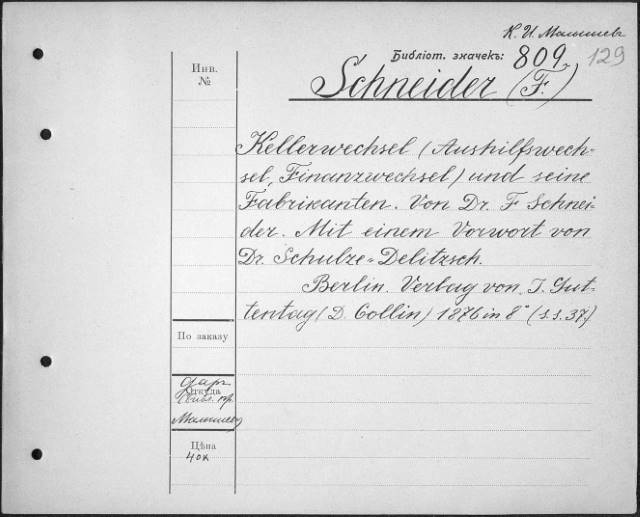 К. И. Малышев
Библіот. значекъ: 809. 129
Инв.
№
Schneider (F.)
Kellerwechsel (Aushilfswech-
sel, Finanzwechsel) und seine
Fabrikanten. Von Dr. F Schnei-
der. Mit einem Vorwort von
Dr. Schulze-Delitzsch.
Berlin. Verlag von J. Gut-
tentag (D. Collin) 1876 in 8° (s.s. 37.)
По заказу
даръ
Откуда
Малышев
Цѣна
40к